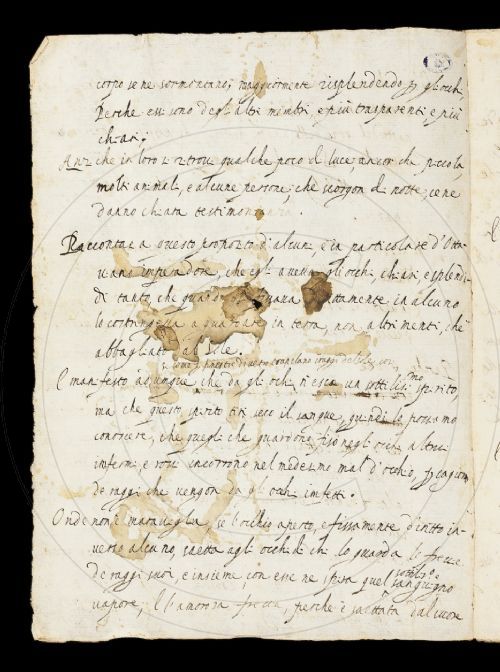 corpo se ne sormontano, maggiormente risplendendo p gli occhi
Perche essi sono degl'altri membri, e più trasparenti e più
chiari.
Anzi che in loro si ritrovi qualche poco di luce, ancor che piccola
molti animali, e alcune persone, che scorgon di notte, ce ne
danno chiara testimonianza.
Raccontasi a questo proposito d'alcuni, e in particolare d'Otta-
viano imperadore, che egli aveva gli occhi, chiari e splendi-
di tanto, che guardando fissamente in alcuno
lo costringeva a guardare in terra, non altrimenti, che
abbagliato dal Sole.
raggi del Sole, con
È manifesto adunque, che da gli occhi n'esca un sottilissmo spirito,
ma che questo spirito tiri seco il sangue, quindi lo possiamo
conoscere, che quegli che guardono fiso negli occhi altrui
infermi, e rossi incorrono nel medesimo mal d'occhio, p cagion
de raggi che vengon da gli occhi infetti.
Onde non è maraviglia, se l'occhio aperto, e fissamente diritto in-
verso alcuno, saetta agli occhi di chi lo guarda le frecce
de raggi suoi, e insieme con esse ne spira quel
sottile
sanguigno
vapore, e l'amorosa freccia, perche è saettata dal cuore